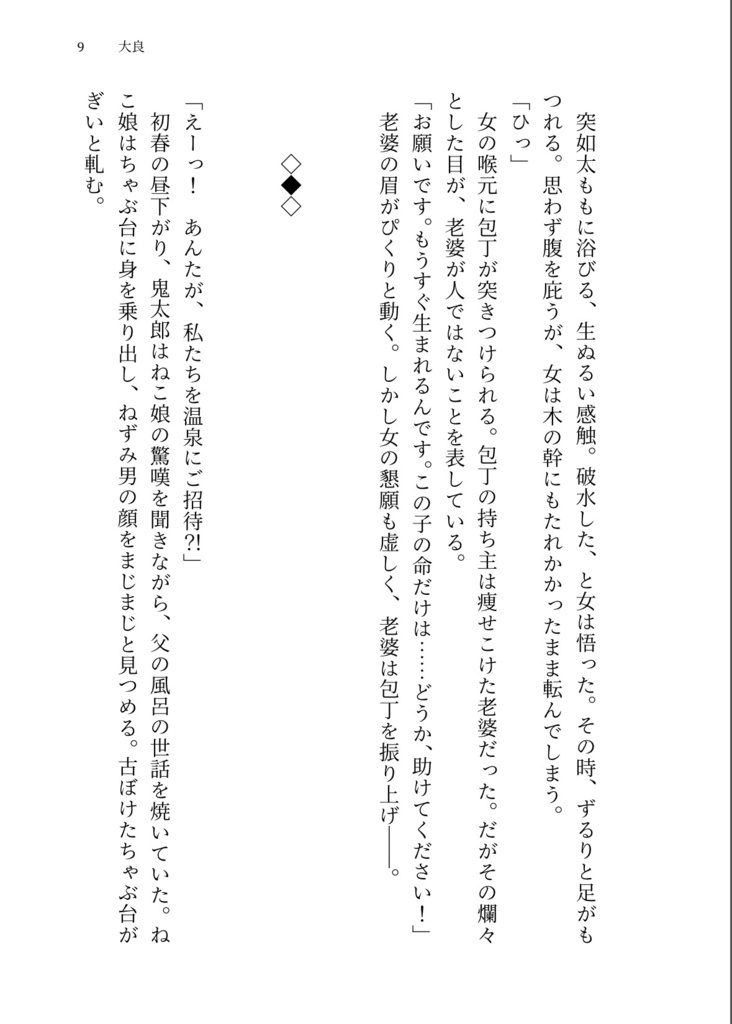 9　大良
　突如太ももに浴びる、生ぬるい感触。破水した、と女は悟った。その時、ずるりと足がも
つれる。思わず腹を庇うが、女は木の幹にもたれかかったまま転んでしまう。
「ひっ」
　女の喉元に包丁が突きつけられる。包丁の持ち主は痩せこけた老婆だった。だがその爛々
とした目が、老婆が人ではないことを表している。
「お願いです。もうすぐ生まれるんです。この子の命だけは……どうか、助けてください！」
　老婆の眉がぴくりと動く。しかし女の懇願も虚しく、老婆は包丁を振り上げ――。
◇◆◇
「えーっ！　あんたが、私たちを温泉にご招待?!」
　初春の昼下がり、鬼太郎はねこ娘の驚嘆を聞きながら、父の風呂の世話を焼いていた。ね
こ娘はちゃぶ台に身を乗り出し、ねずみ男の顔をまじまじと見つめる。古ぼけたちゃぶ台が
ぎいと軋む。